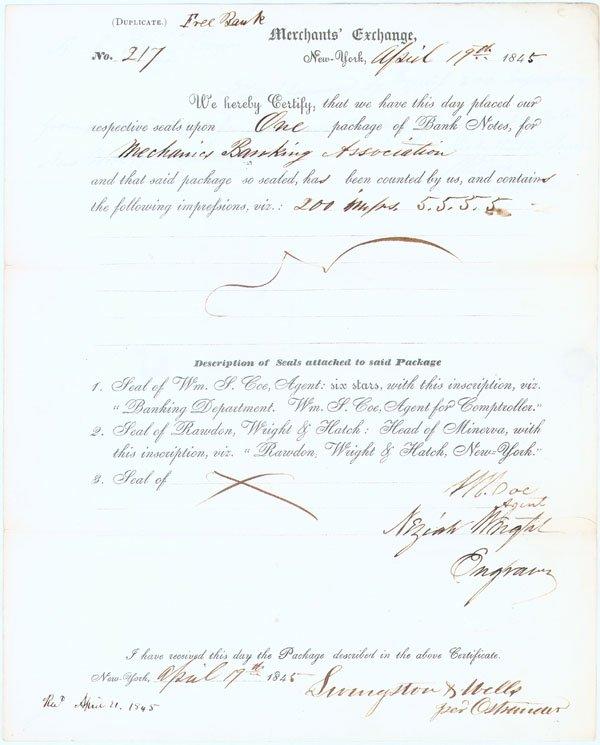 (DUPLICATE.) Free Bank
Merchants' Exchange,
No. 217 New-York, April 19th 1845
We hereby Certify, that we have this day placed our
respective seals upon One package of Bank Notes, for
Mechanics Banking Association
and that said package so sealed, has been counted by us, and contains
the following impressions, viz.: 200 Imprs. 5.5.5.5
Description of Seals attached to said Package
1. Seal of Wm. S. Coe, Agent: six stars, with this inscription, viz.
"Banking Department. Wm. S. Coe, Agent for Comptroller."
2. Seal of Rawdon, Wright & Hatch: Head of Minerva, with
this inscription, viz. "Rawdon, Wright & Hatch, New-York."
3. Seal of
Coe
Agent
Neziah Wright
Engraver
I have received this day the Package described in the above Certificate.
New-York, April 19th 1845 Livingston & Wells
Recd April 21. 1845 per